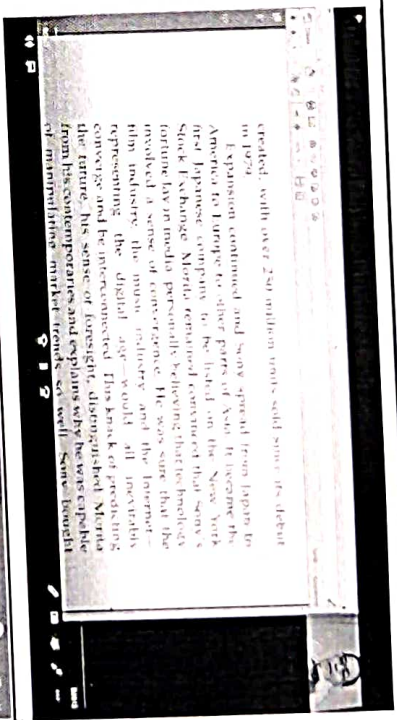 created, with over 250 million units sold since its debut
in 1979.
Expansion continued and Sony spread from Japan to
America to Europe to other parts of Asia. It became the
first Japanese company to be listed on the New York
Stock Exchange. Morita remained convinced that Sony's
fortune lay in media, personally believing that technology
involved a sense of convergence. He was sure that the
film industry, the music industry and the Internet—
representing the digital age—would all inevitably
converge and be interconnected. This knack of predicting
the future, his sense of foresight, distinguished Morita
from his contemporaries and explains why he was capable
of manipulating market trends so well. Sony bought